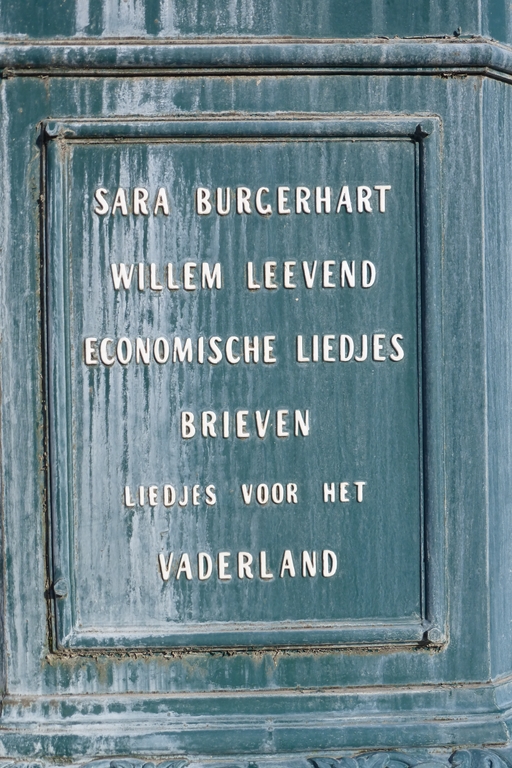 SARA BURGERHART
WILLEM LEEVEND
ECONOMISCHE LIEDJES
BRIEVEN
LIEDJES VOOR HET
VADERLAND